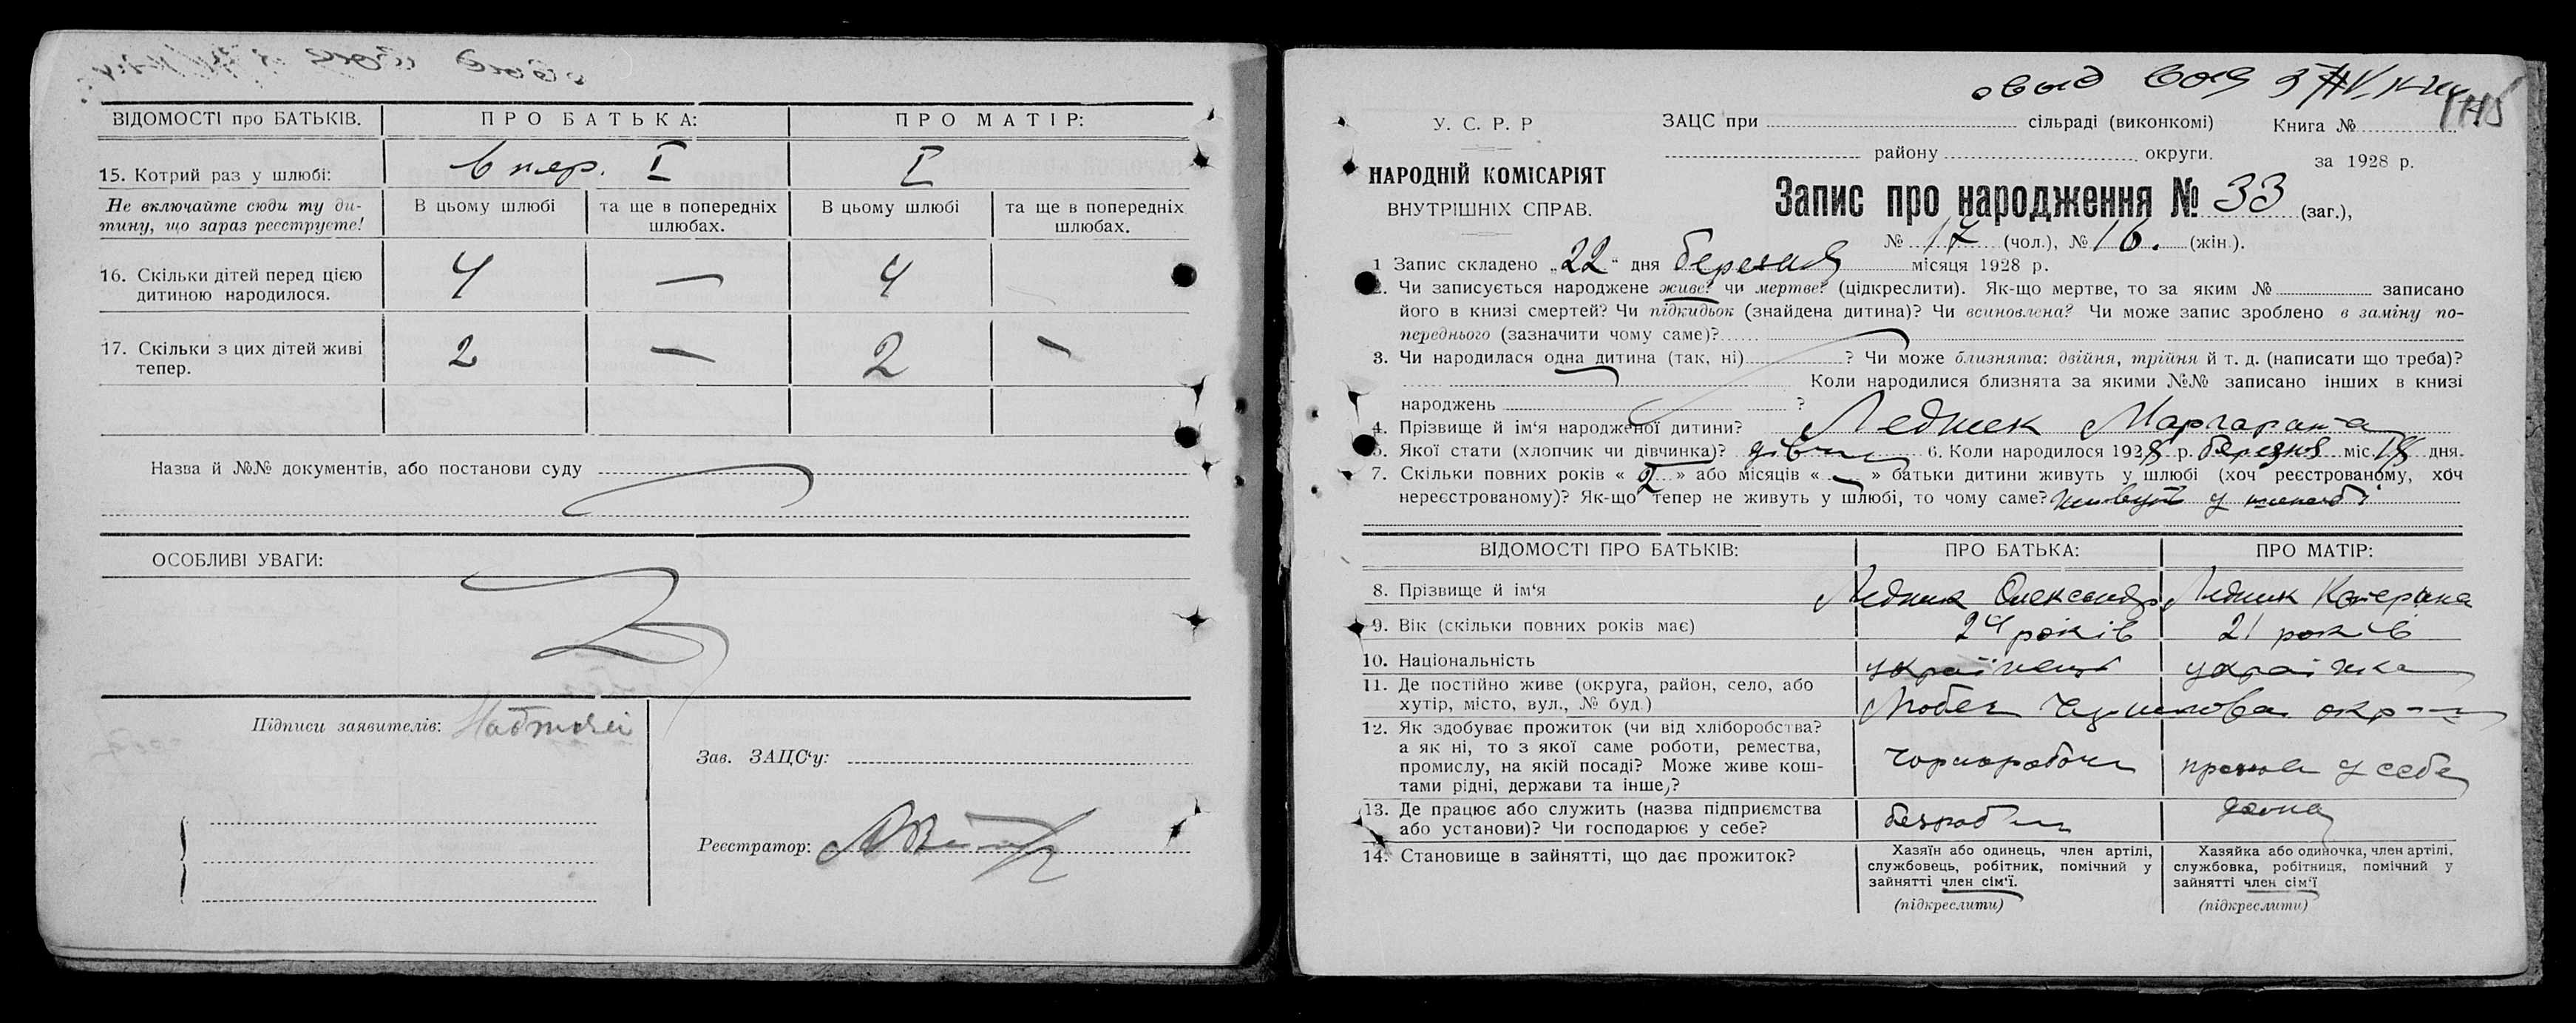 ВІДОМОСТІ про БАТЬКІВ. ПРО БАТЬКА: ПРО МАТІР:
15. Котрий раз у шлюбі: в пер. I I
Не включайте сюди ту ди-
тину, що зараз реєструєте!
В цьому шлюбі та ще в попередніх шлюбах. В цьому шлюбі та ще в попередніх шлюбах.
16. Скільки дітей перед цією
дитиною народилося. 4 — 4
17. Скільки з цих дітей живі
тепер. 2 — 2 —
Назва й №№ документів, або постанови суду
ОСОБЛИВІ УВАГИ:
Підписи заявителів:
Зав. ЗАЦС'у:
Реєстратор:
У. С. Р. Р
НАРОДНІЙ КОМІСАРІЯТ
ВНУТРІШНІХ СПРАВ.
ЗАЦС при сільраді (виконкомі) Книга №
району округи. за 1928 р.
Запис про народження № 33 (заг.),
№ 17 (чол.), № 16. (жін.).
1 Запис складено „22“ дня березня місяця 1928 р.
2. Чи записується народжене живе? чи мертве? (цідкреслити). Як-що мертве, то за яким № записано
його в книзі смертей? Чи підкидьок (знайдена дитина)? Чи всиновлена? Чи може запис зроблено в заміну по-
переднього (зазначити чому саме)?
3. Чи народилася одна дитина (так, ні) ? Чи може близнята: двійня, трійня й т. д. (написати що треба)?
Коли народилися близнята за якими №№ записано інших в книзі
народжень ?
4. Прізвище й ім'я народженої дитини? Ледшек Маргарита
5. Якої стати (хлопчик чи дівчинка)? дівч 6. Коли народилося 1928 р. березня міс. 18 дня.
7. Скільки повних років « 2 » або місяців « — » батьки дитини живуть у шлюбі (хоч реєстрованому, хоч
нереєстрованому)? Як-що тепер не живуть у шлюбі, то чому саме? живуть у шлюбі
ВІДОМОСТІ ПРО БАТЬКІВ: ПРО БАТЬКА: ПРО МАТІР:
8. Прізвище й ім'я Олександр Катерина
9. Вік (скільки повних років має) 24 років 21 років
10. Національність українець українка
11. Де постійно живе (округа, район, село, або
хутір, місто, вул., № буд.) окр
12. Як здобуває прожиток (чи від хліборобства?
а як ні, то з якої саме роботи, ремества,
промислу, на якій посаді? Може живе кош-
тами рідні, держави та інше,?
чорноробочи у себе
13. Де працює або служить (назва підприємства
або установи)? Чи господарює у себе?
безроб дома
14. Становище в зайнятті, що дає прожиток?
Хазяїн або одинець, член артілі,
службовець, робітник, помічний у
зайнятті член сім'ї.
(підкреслити)
Хазяйка або одиночка, член артілі,
службовка, робітниця, помічний у
зайнятті член сім'ї
(підкреслити)